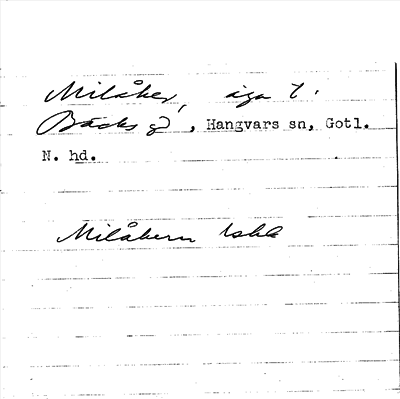 Milåker, äga t.
Bäcks g, Hangvars sn, Gotl.
N. hd.
Milåkern